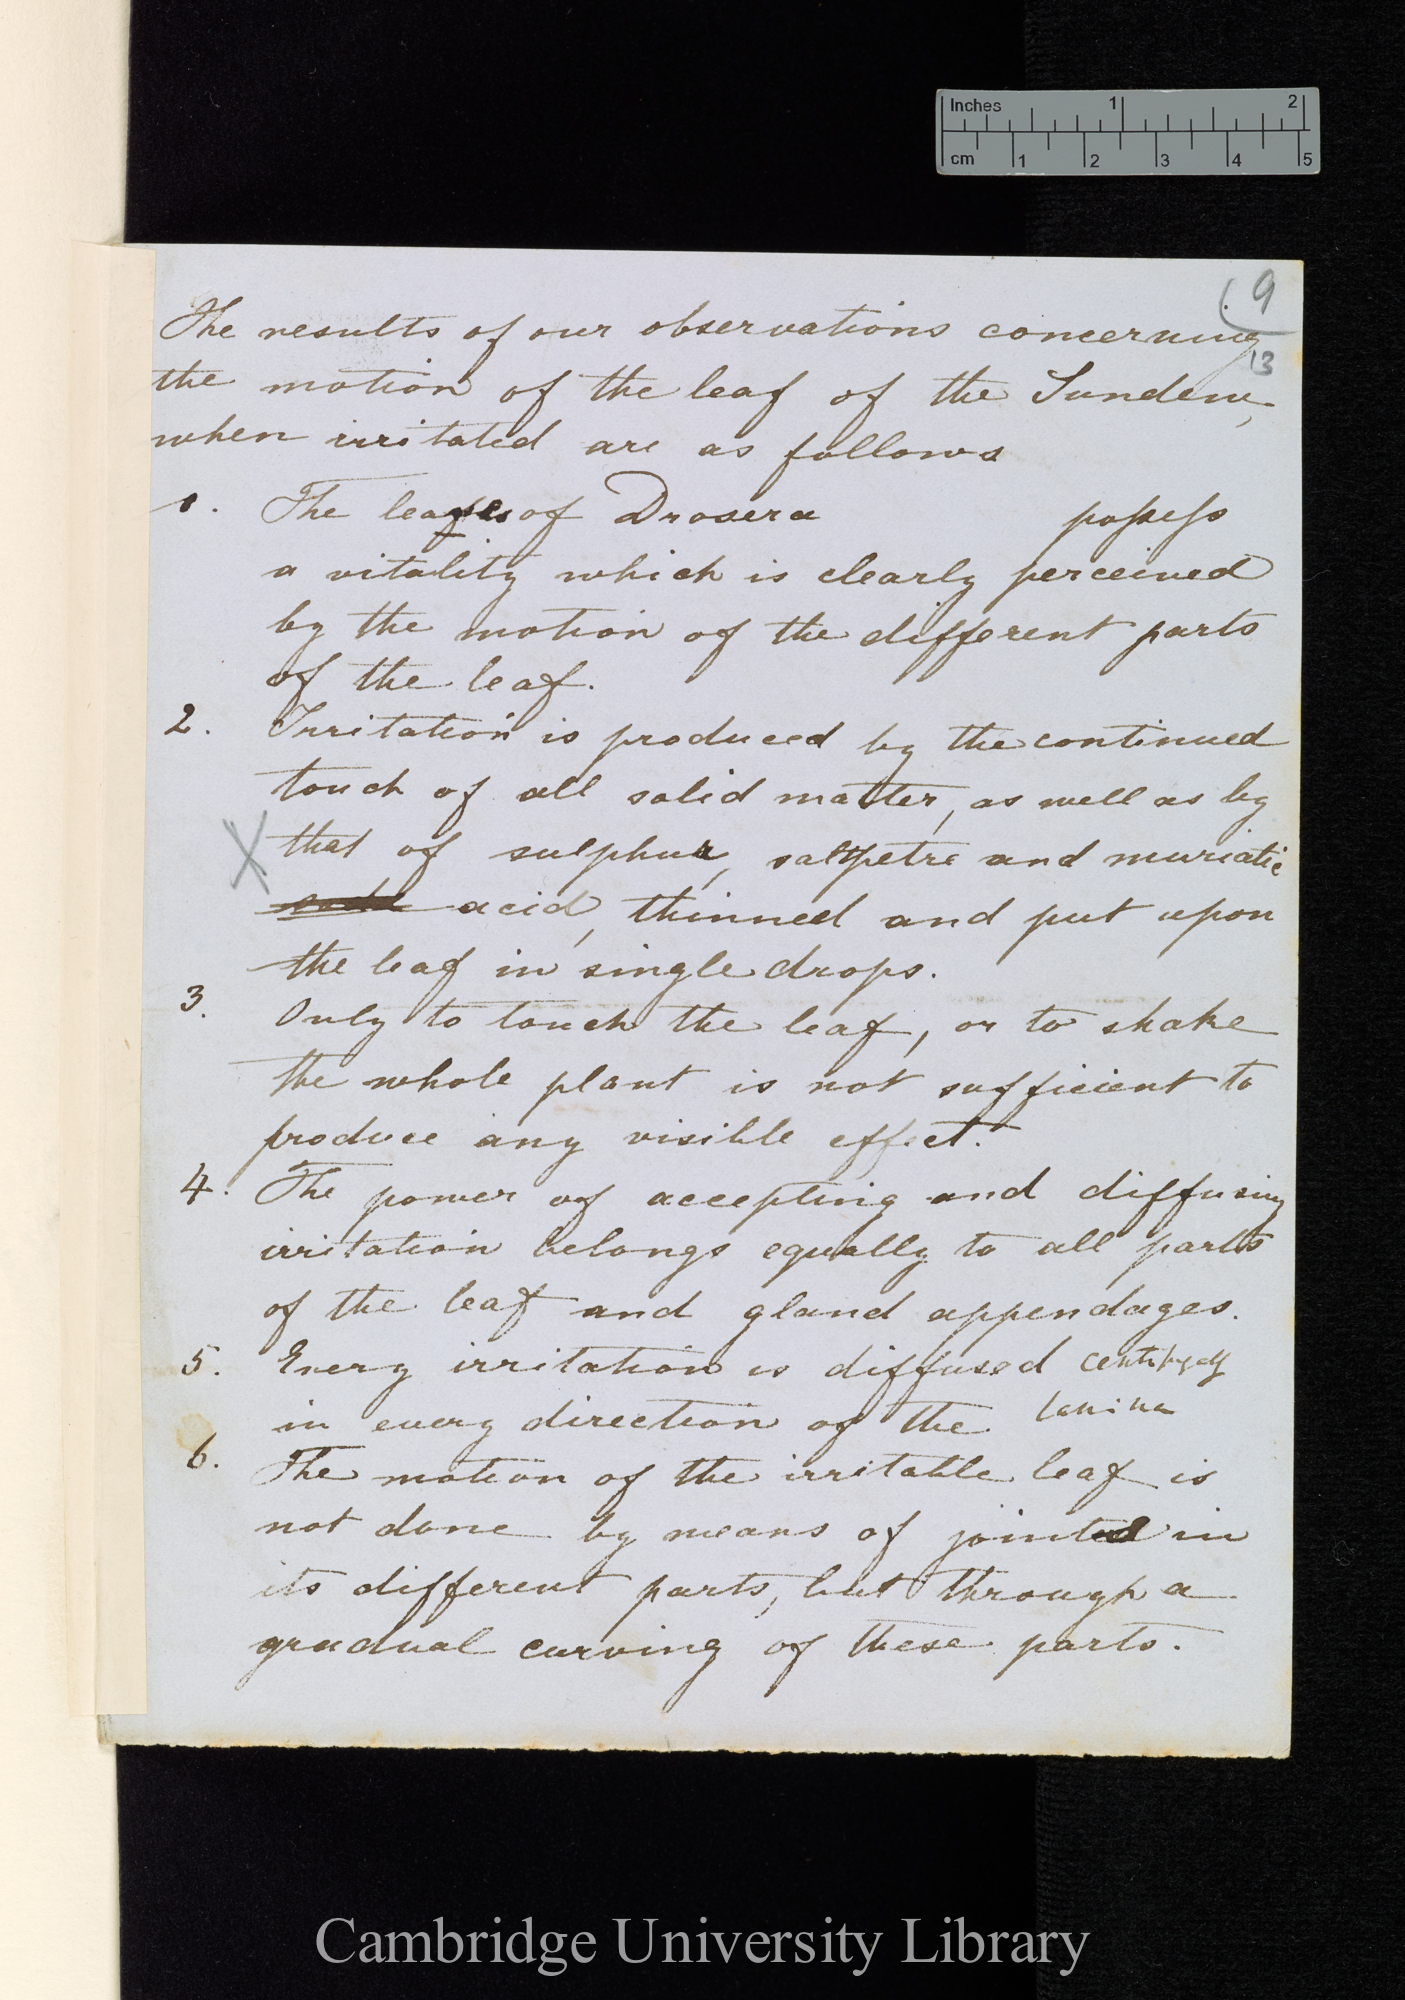 Inches 1 2
cm 1 2 3 4 5
9
13
The results of our observations concerning
the motion of the leaf of the Sundew,
when irritated are as follows
1. The leaves of Drosera possess
a vitality which is clearly perceived
by the motion of the different parts
of the leaf.
2. Irritation is produced by the continued
touch of all solid matter, as well as by
X that of sulphur, saltpetre and muriatic
acid, thinned and put upon
the leaf in single drops.
3. Only to touch the leaf, or to shake
the whole plant is not sufficient to
produce any visible effect.
4. The power of accepting and diffusing
irritation belongs equally to all parts
of the leaf and gland appendages.
5. Every irritation is diffused centrifugally
in every direction of the lamina
6. The motion of the irritable leaf is
not done by means of joints in
its different parts, but through a
gradual curving of these parts.
Cambridge University Library